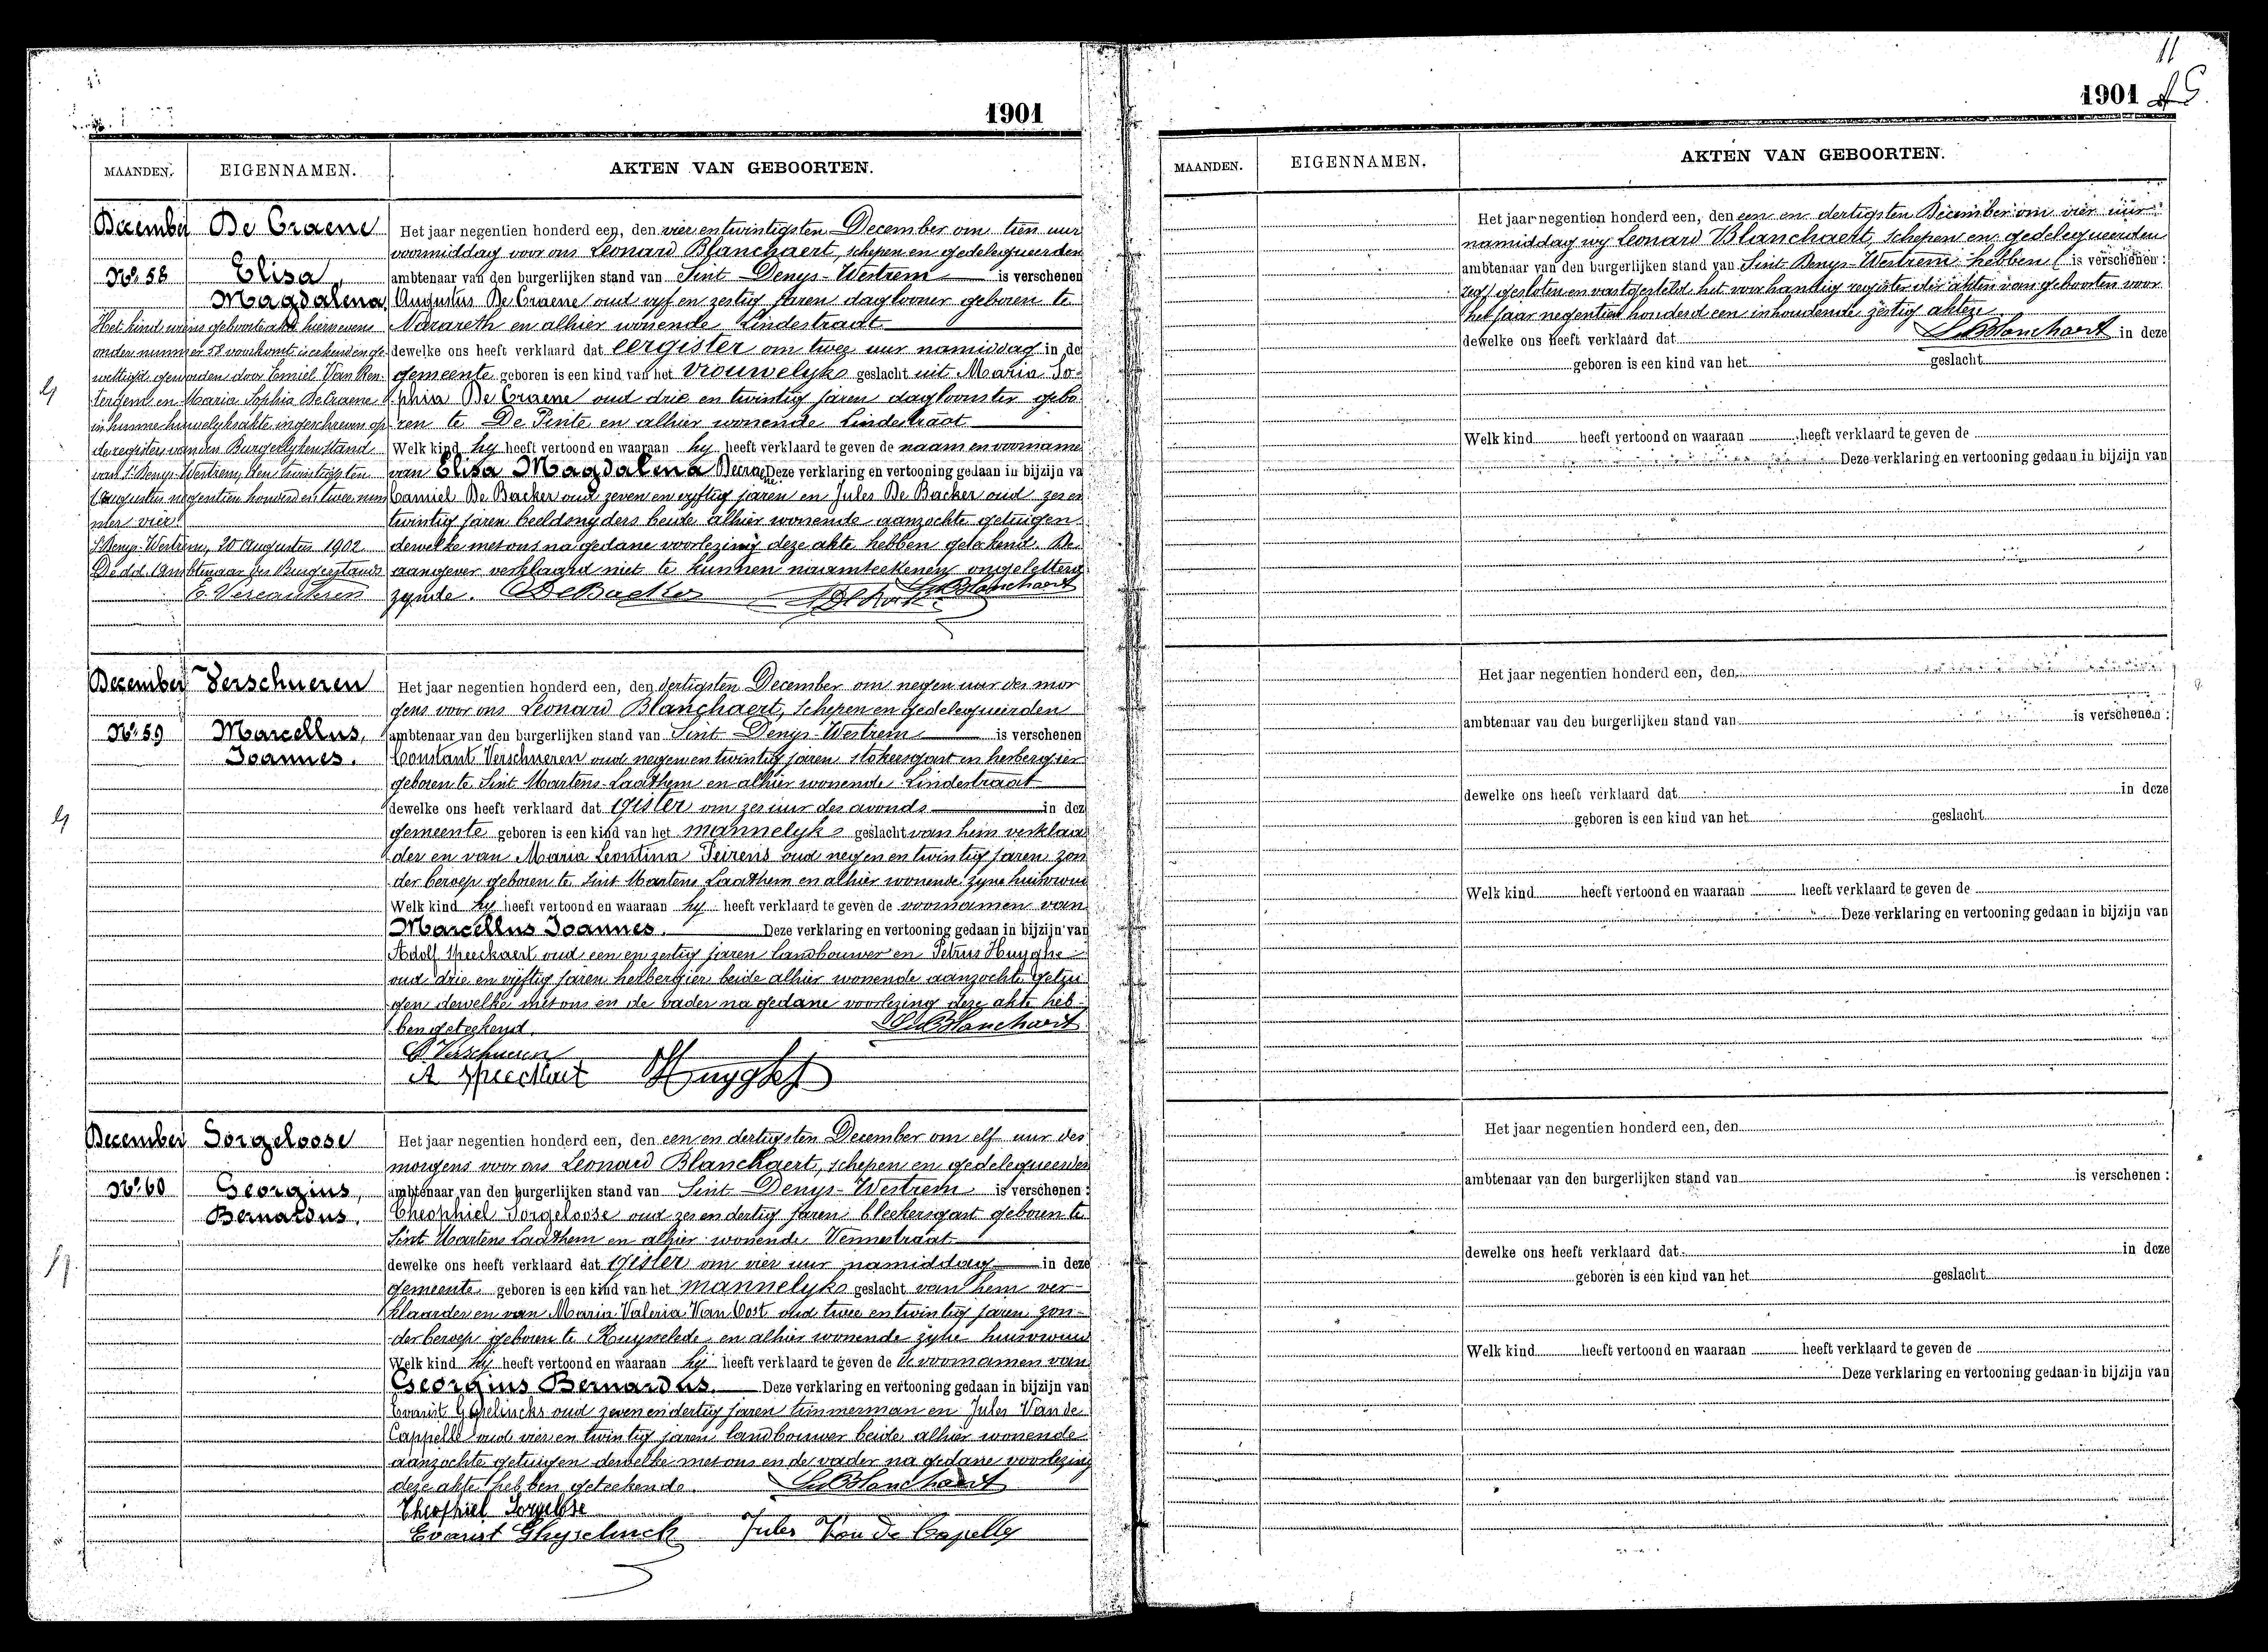 1901
MAANDEN. EIGENNAMEN. AKTEN VAN GEBOORTEN.
December De Craene
No. 58 Elisa,
Magdalena.
Het kind wiens geboorteakt hiernevens
onder nummer 58 voorkomt is erkend en ge-
wettigd geworden door Emiel Van Ren-
tergem en Maria Sophia De Craene
in hunne huwelyksakte ingeschreven op
de register van den Burgerlyken stand
van St Denys-Westrem, den twintigsten
Augustus negentien honderd en twee num
mer vier.
St Denys-Westrem, 20 Augustus 1902.
De dd. Ambtenaar des Burgerstands
E. Vercauteren
Het jaar negentien honderd een, den vier en twintigsten December om tien uur
voormiddag voor ons Leonard Blanchaert, schepen en gedelegueerden
ambtenaar van den burgerlijken stand van Sint Denys-Westrem is verschenen
Augustus De Craene oud vyf en zestig jaren daglooner geboren te
Nazareth en alhier wonende Lindestraat
dewelke ons heeft verklaard dat eergister om twee uur namiddag in de
gemeente geboren is een kind van het vrouwelyks geslacht uit Maria So-
phia De Craene oud drie en twintig jaren dagloonster gebo
ren te De Pinte en alhier wonende Lindestraat
Welk kind hy heeft vertoond en waaraan hy heeft verklaard te geven de naam en voorname
van Elisa Magdalena Decraene Deze verklaring en vertooning gedaan in bijzijn va
Camiel De Backer oud zeven en vyftig jaren en Jules De Backer oud zes en
twintig jaren beeldsnyders beide alhier wonende aanzochte getuigen
dewelke met ons na gedane voorlezing deze akte hebben geteekend. De
aangever verklaard niet te kunnen naamteekenen ongeletterd
zynde. C De Backer L. Blanchaert
December Verschueren
No. 59 Marcellus,
Joannes.
Het jaar negentien honderd een, den dertigsten December om negen uur des mor
gens voor ons Leonard Blanchaert, schepen en gedelegueerden
ambtenaar van den burgerlijken stand van Sint Denys-Westrem is verschenen
Constant Verschueren oud negen en twintig jaren stokersgast en herbergier
geboren te Sint Martens-Laathem en alhier wonende Lindestraat
dewelke ons heeft verklaard dat gister om zes uur des avonds in dez
gemeente geboren is een kind van het mannelyks geslacht van hem verklaar
der en van Maria Leontina Peirens oud negen en twintig jaren zon
der beroep geboren te Sint Martens Laathem en alhier wonende zyne huisvrouw
Welk kind hy heeft vertoond en waaraan hy heeft verklaard te geven de voornamen van
Marcellus Joannes. Deze verklaring en vertooning gedaan in bijzijn van
Adolf Speeckaert oud een en zestig jaren landbouwer en Petrus Huyghe
oud drie en vyftig jaren herbergier beide alhier wonende aanzochte getui
gen dewelke met ons en de vader na gedane voorlezing deze akte heb-
ben geteekend. L. Blanchaert
C. Verschueren
A Speeckaert Huyghe
December Sorgeloose
No. 60 Georgius,
Bernardus.
Het jaar negentien honderd een, den een en dertigsten December om elf uur des
morgens voor ons Leonard Blanchaert, schepen en gedelegueerden
ambtenaar van den burgerlijken stand van Sint Denys-Westrem is verschenen :
Theophiel Sorgeloose oud zes en dertig jaren bleekersgast geboren te
Sint Martens Laathem en alhier wonende Vennestraat
dewelke ons heeft verklaard dat gister om vier uur namiddag in deze
gemeente geboren is een kind van het mannelyks geslacht van hem ver-
klaarder en van Maria Valeria Van Oost oud twee en twintig jaren zon-
der beroep geboren te Ruysselede en alhier wonende zyne huisvrouw
Welk kind hy heeft vertoond en waaraan hij heeft verklaard te geven de de voornamen van
Georgius Bernardus. Deze verklaring en vertooning gedaan in bijzijn van
Evarist Gyselincks oud zeven en dertig jaren timmerman en Jules Van de
Cappelle oud vier en twintig jaren landbouwer beide alhier wonende
aanzochte getuigen dewelke met ons en de vader na gedane voorlezing
deze akte hebben geteekende. L. Blanchaert
Theophiel Sorgelose
Evarist Ghyselinck Jules Van De Capelle
11
1901
MAANDEN. EIGENNAMEN. AKTEN VAN GEBOORTEN.
Het jaar negentien honderd een, den een en dertigsten December om vier uur
namiddag wy Leonard Blanchaert, schepen en gedelegueerden
ambtenaar van den burgerlijken stand van Sint Denys-Westrem hebben ( is verschenen :
zegt gesloten en vastgesteld het voorhandig register der akten van geboorten voor
het jaar negentien honderd een inhoudende zestig akten.
dewelke ons heeft verklaard dat L. Blanchaert in deze
geboren is een kind van het geslacht
Welk kind heeft vertoond en waaraan heeft verklaard te geven de
Deze verklaring en vertooning gedaan in bijzijn van
Het jaar negentien honderd een, den
ambtenaar van den burgerlijken stand van is verschenen :
dewelke ons heeft verklaard dat in deze
geboren is een kind van het geslacht
Welk kind heeft vertoond en waaraan heeft verklaard te geven de
Deze verklaring en vertooning gedaan in bijzijn van
Het jaar negentien honderd een, den
ambtenaar van den burgerlijken stand van is verschenen :
dewelke ons heeft verklaard dat in deze
geboren is een kind van het geslacht
Welk kind heeft vertoond en waaraan heeft verklaard te geven de
Deze verklaring en vertooning gedaan in bijzijn van